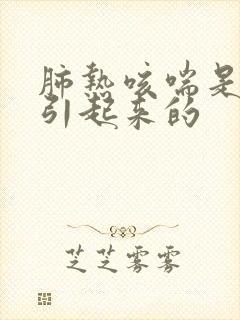 肺热咳喘是
引起来的
芝芝雾雾